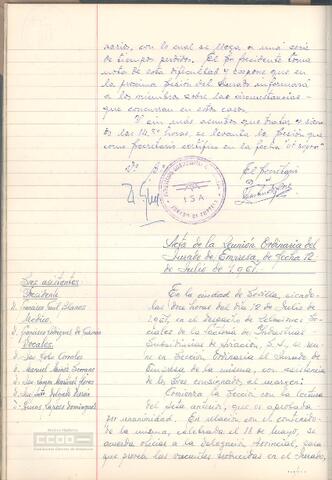 sario, con lo cual se llega a una serie
de tiempos perdidos. El Sr. Presidente toma
nota de esta dificultad y expone que en
la próxima sesión del Jurado informará
a los miembros sobre las circunstancias
que concurran en estos casos.
Y sin más asuntos que tratar, y siendo
las 14,5 horas, se levanta la sesión que
como Secretario certifico en la fecha "ut supra"
El Secretario
I S A
Acta de la Reunión Ordinaria del
Jurado de Empresa, de fecha 12
de Julio de 1.961.
Sres asistentes
Presidente
D. Francisco
Médico
D. Francisco Rodríguez de
Vocales.
D. José Goño Corrales
D. Manuel Muñoz Serrano
D. José Luis Delgado
D. Dominguez
En la ciudad de Sevilla, siendo
las doce horas del día 12 de Julio de
1.961, en el despacho de Relaciones So-
ciales de la Factoría de Industrias
Subsidiarias de Aviación, S.A., se reu-
ne en Sección Ordinaria el Jurado de
Empresa de la misma, con asistencia
de los Sres consignados al margen:
Comienza la Sección con la lectura
del Acta anterior, que es aprobada
por unanimidad. En relación con el contenido
de la misma, celebrada el 18 de Mayo, se
acuerda oficiar a la Delegación Provincial, para
que provea las vacantes producidas en el Jurado,
Archivo Histórico
CCOO